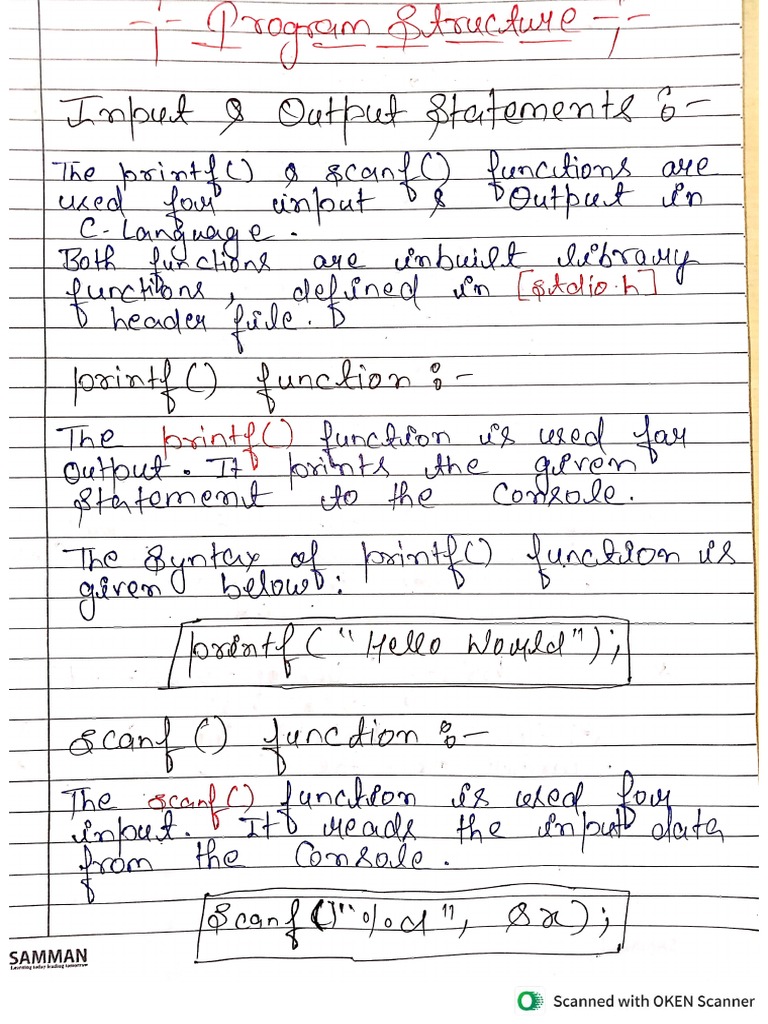 -:- Program Structure -:-
Input & Output Statements :-
The printf() & scanf() functions are
used for input & Output in
C-Language.
Both functions are inbuilt library
functions, defined in [stdio.h]
header file.
printf() function :-
The printf() function is used for
Output. It prints the given
Statement to the Console.
The Syntax of printf() function is
given below:
printf("Hello World");
Scanf() function :-
The scanf() function is used for
input. It reads the input data
from the Console.
Scanf("%d", &x);
SAMMAN
Learning today leading tomorrow
Scanned with OKEN Scanner